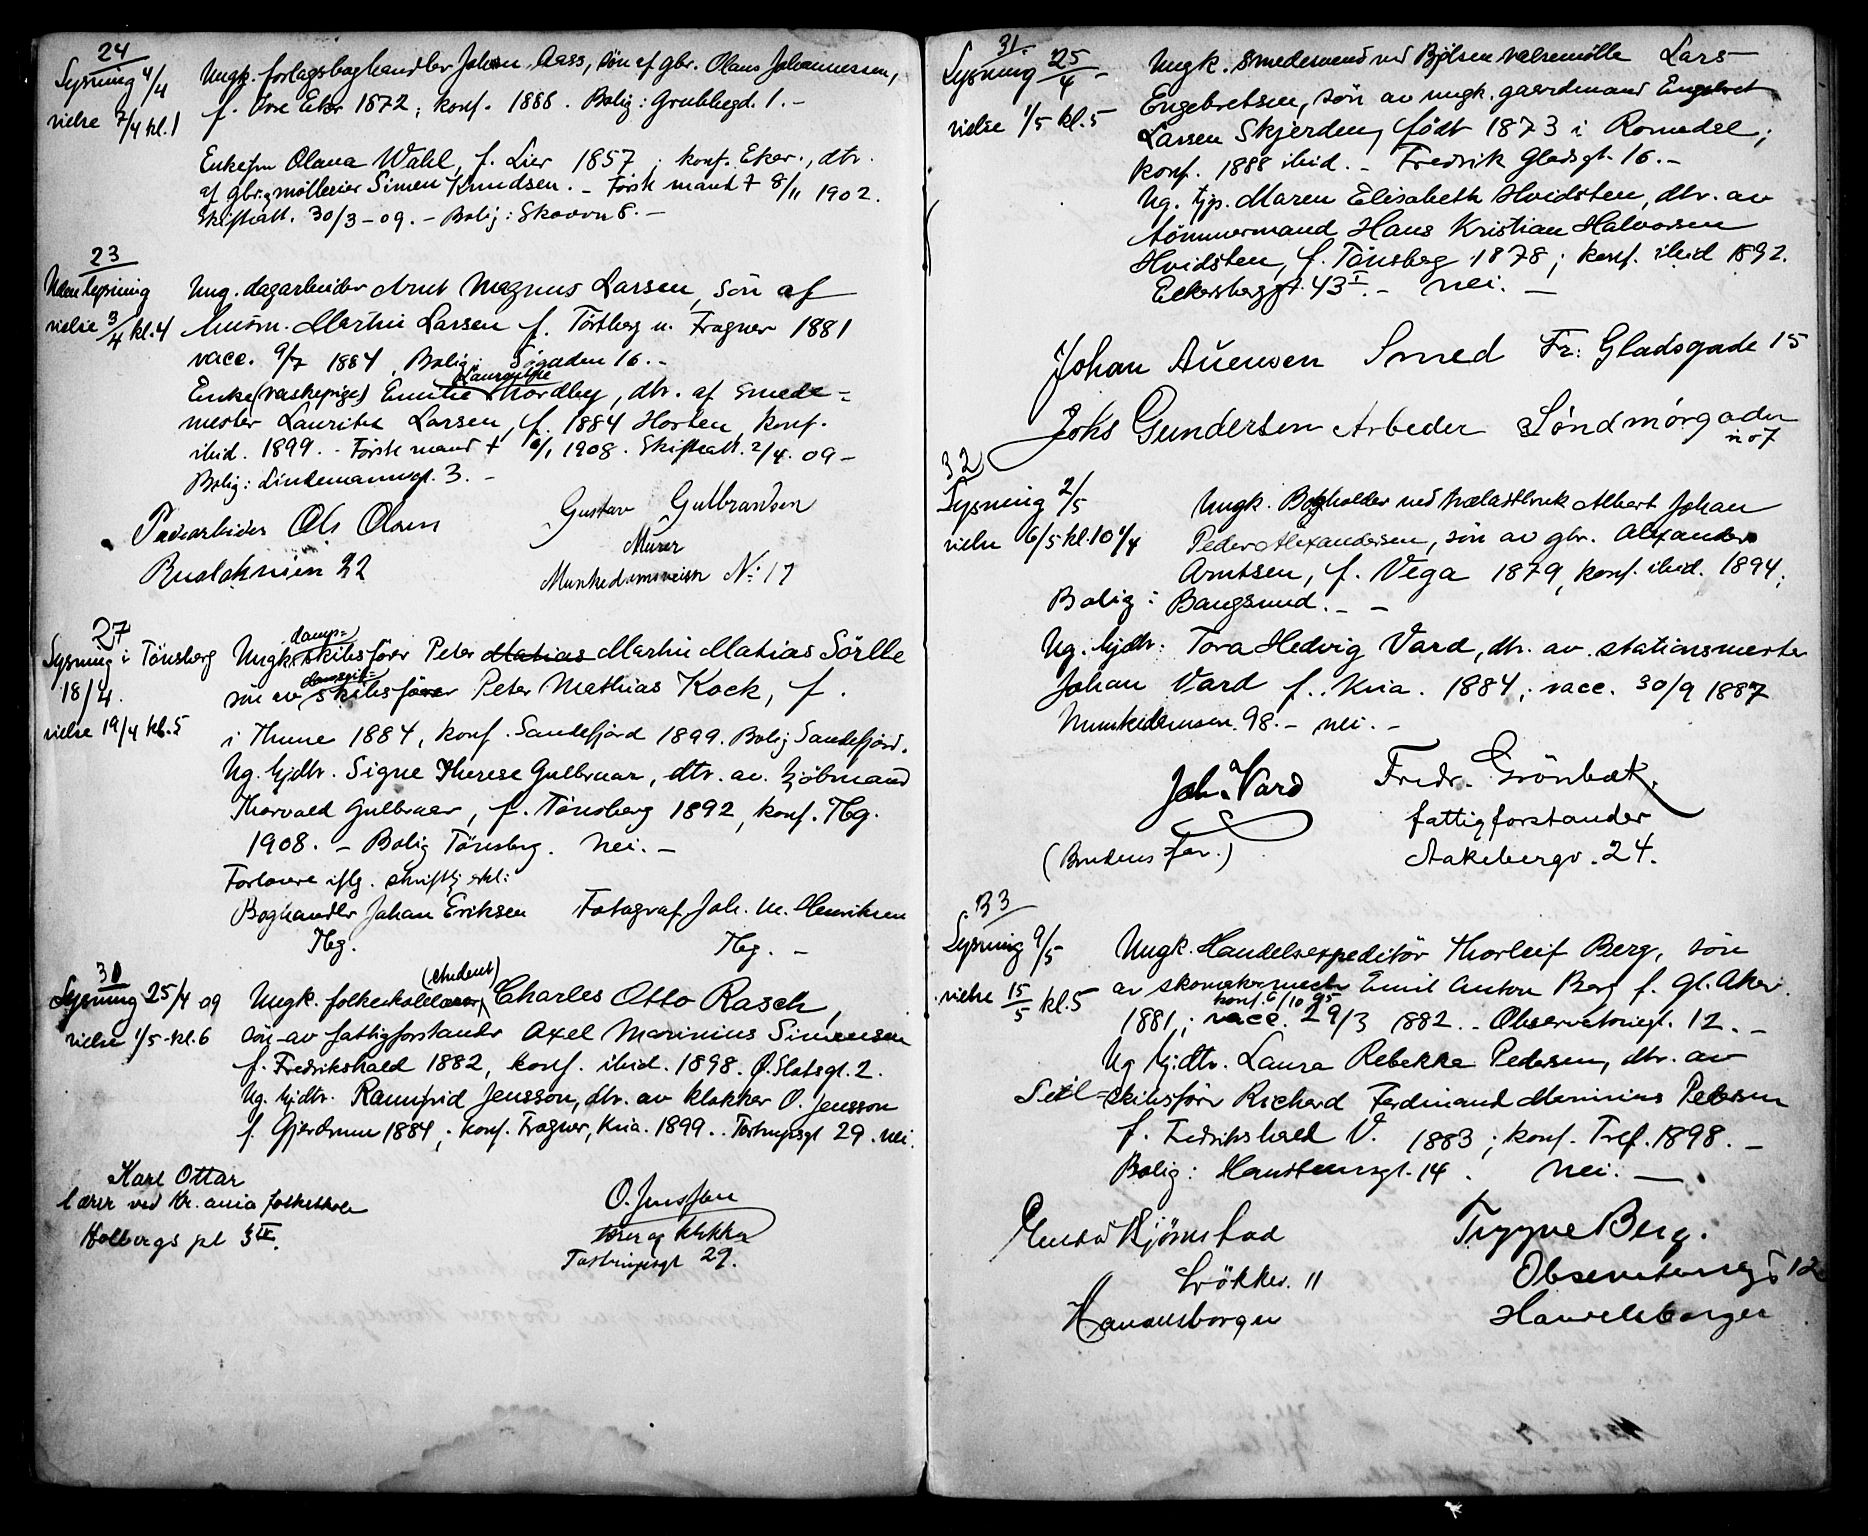 24
Lysning 4/4
vielse 7/4 kl. 1
Ungk. forlagsboghandler Johan Aass, søn af gbr. Olaus Johannessen,
f. Øvre Eker 1872; konf. 1888. Bolig: Grubbegd. 1. -
Enkefru Olava Wahl, f. Lier 1857; konf. Eker., dtr.
af gbr. møllerier Simen Knudsen. - Første mand † 8/11 1902.
Skifteatt. 30/3 - 09. - Bolig: Skovvn 8. -
23
Uden Lysning
vielse 3/4 kl. 4
Ung. dagarbeider Arnt Magnus Larsen, søn af
husm. Martin Larsen f. Tørtberg u. Fragner 1881
vacc. 9/7 1884, Bolig: Søgaden 16. -
Enke (vaskepige) Emilie Nordby, dtr. af smede-
mester Lauritz Larsen, f. 1884 Horten, konf.
ibid. 1899. - Første mand † /1 1908. Skifteatt. 2/4. 09 -
Bolig: Lindemannsgt. 3. -
Ole Olsen
22
Gustav Gulbrandsen
Murer
Munkedamsveien No: 17
27
Lysning i Tønsberg
18/4.
vielse 19/4 kl. 5
damp=
Ungk. skibsfører Peter Matias Martin Matias Sørlle
søn av skibsfører Peter Mathias Kock, f.
i Thune 1884, konf. Sandefjord 1899. Bolig Sandefjord.
Ug. hjdtr. Signe Therese Gulbruar, dtr. av. kjøbmand
Thorvald Gulbraar, f. Tønsberg 1892, konf. Tbg.
1908. - Bolig Tønsberg. Nei. -
Forlovere iflg. skriftlig erkl:
Boghandler Johan Eriksen Fotograf Joh. M. Henriksen
Tbg. Tbg. -
30
Lysning 25/4 09
vielse 1/5 - kl. 6
(student)
Ungk. folkeskolelærer, Charles Otto Rasch,
søn av fattigforstander Axel Marinius Simensen
f. Fredrikshald 1882, konf. ibid. 1898. Ø. Slotsgt. 2.
Ug. hjdtr. Rannfrid Jensson, dtr. av klokker O. Jensson
f. Gjerdrum 1884; konf. Fragner, Kria. 1899. Tostrupsgt 29. nei.
Karl Ottar
lærer ved Kr.ania folkeskole
Holbergs pl 3 IV.
O. Jensson
lærer og klokker
Tostrupsgt 29.
31.
Lysning 25/4 -
vielse 1/5 kl. 5
Ungk. smedesvend ved Bjølsen valsemølle Lars
Engebretsen, søn av ungk. gaardmand Engebret
Larsen Skjerden, født 1873 i Romedal;
konf. 1888 ibid. - Fredrik Gladsgt. 16. -
Ug. tjp. Maren Elisabeth Hvidsten, dtr. av
tømmermand Hans Kristian Halvorsen
Hvidsten, f. Tønsberg 1878; konf. ibid 1892.
Eckersberggt. 43 I. - Nei. -
Johan Auensen Smed Fr: Gladsgade 15
Johs Gundersen Arbeder Søndmørgaden
no 7
32
Lysning 2/5
vielse 6/5 kl. 10 1/4
Ungk. Bogholder ved trælastbruk Albert Johan
Peder Alexandersen, søn av gbr. Alexander
Arntsen, f. Vega 1879, konf. ibid. 1894;
Bolig: Bangsund. - -
Ug. hjdtr: Tora Hedvig Vard, dtr. av stationsmester
Johan Vard f. Kria. 1884; vacc. 30/9 1887
Munkedamsvn. 98. - nei. -
Joh. Vard
(Brudens Far.)
Fredr. Grönbæk.
fattigforstander
Aakebergv. 24.
33
Lysning 9/5
vielse 15/5 kl. 5
Ungk. Handelsexpeditør Thorleif Berg, søn
av skomakermester Emil Anton Berg f. Gl. Aker.
konf. 6/10 95
1881,; vacc. 29/3 1882. - Observatoriegt. 12. -
Ug hj.dtr. Laura Rebekka Pedersen, dtr. av
Seil=skibsfører Richard Ferdinand Marinius Pedersen
f. Fredrikshald V. 1883; konf. Tref. 1898. -
Bolig: Hansteensgt. 14. Nei. -
Bjørnstad
Løkkev. 11
Handelsborger
Trygve Berg.
Observatoriegt 12
Handelsborger